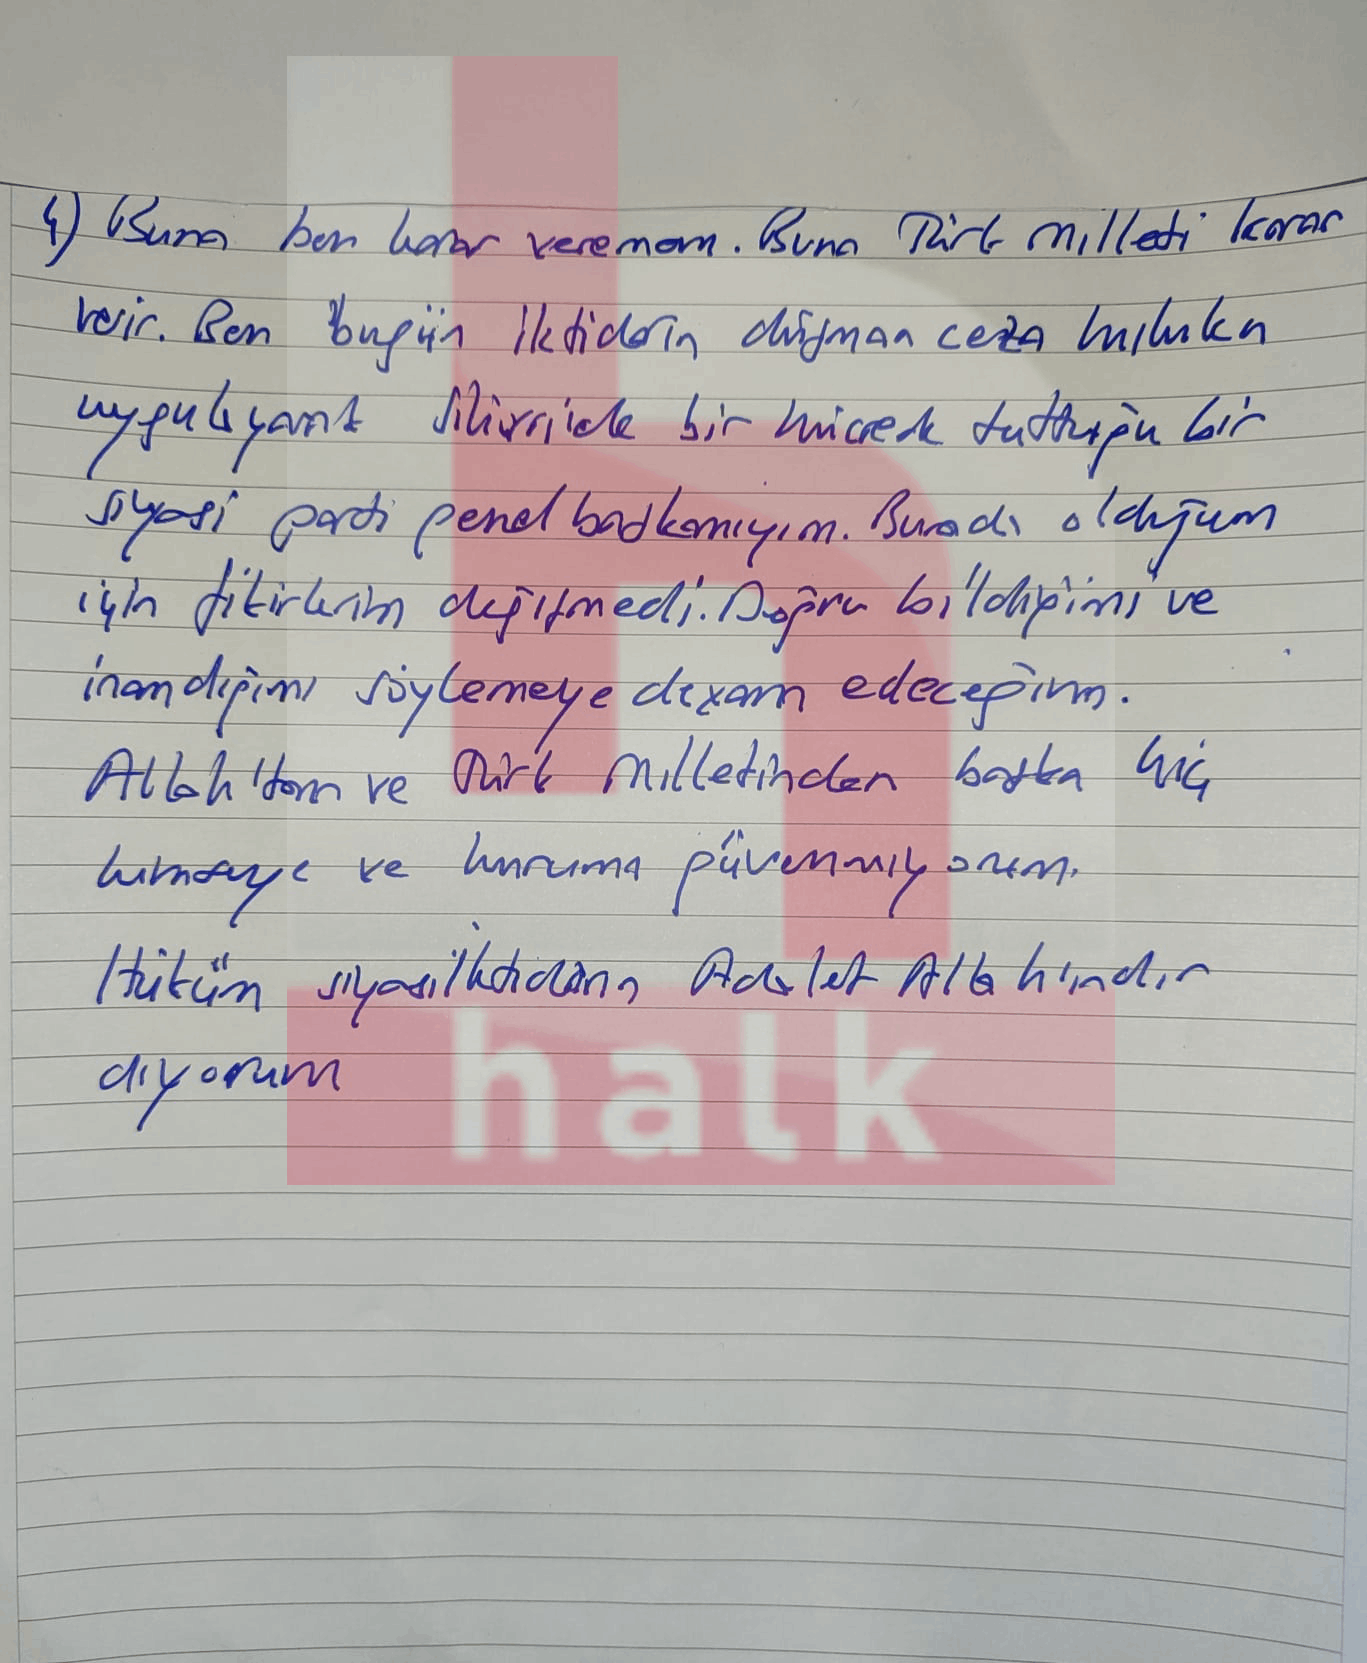 4) Buna ben karar veremem. Buna Türk milleti karar
verir. Ben bugün iktidarın düşman ceza hukuku
uygulayarak Silivri'de bir hücrede tuttuğu bir
siyasi parti genel başkanıyım. Burada olduğum
için fikirlerim değişmedi. Doğru bildiğimi ve
inandığımı söylemeye devam edeceğim.
Allah'tan ve Türk Milletinden başka hiç
kimseye ve kuruma güvenmiyorum.
Hüküm siyasi iktidarın Adalet Allah'ındır
diyorum
halk